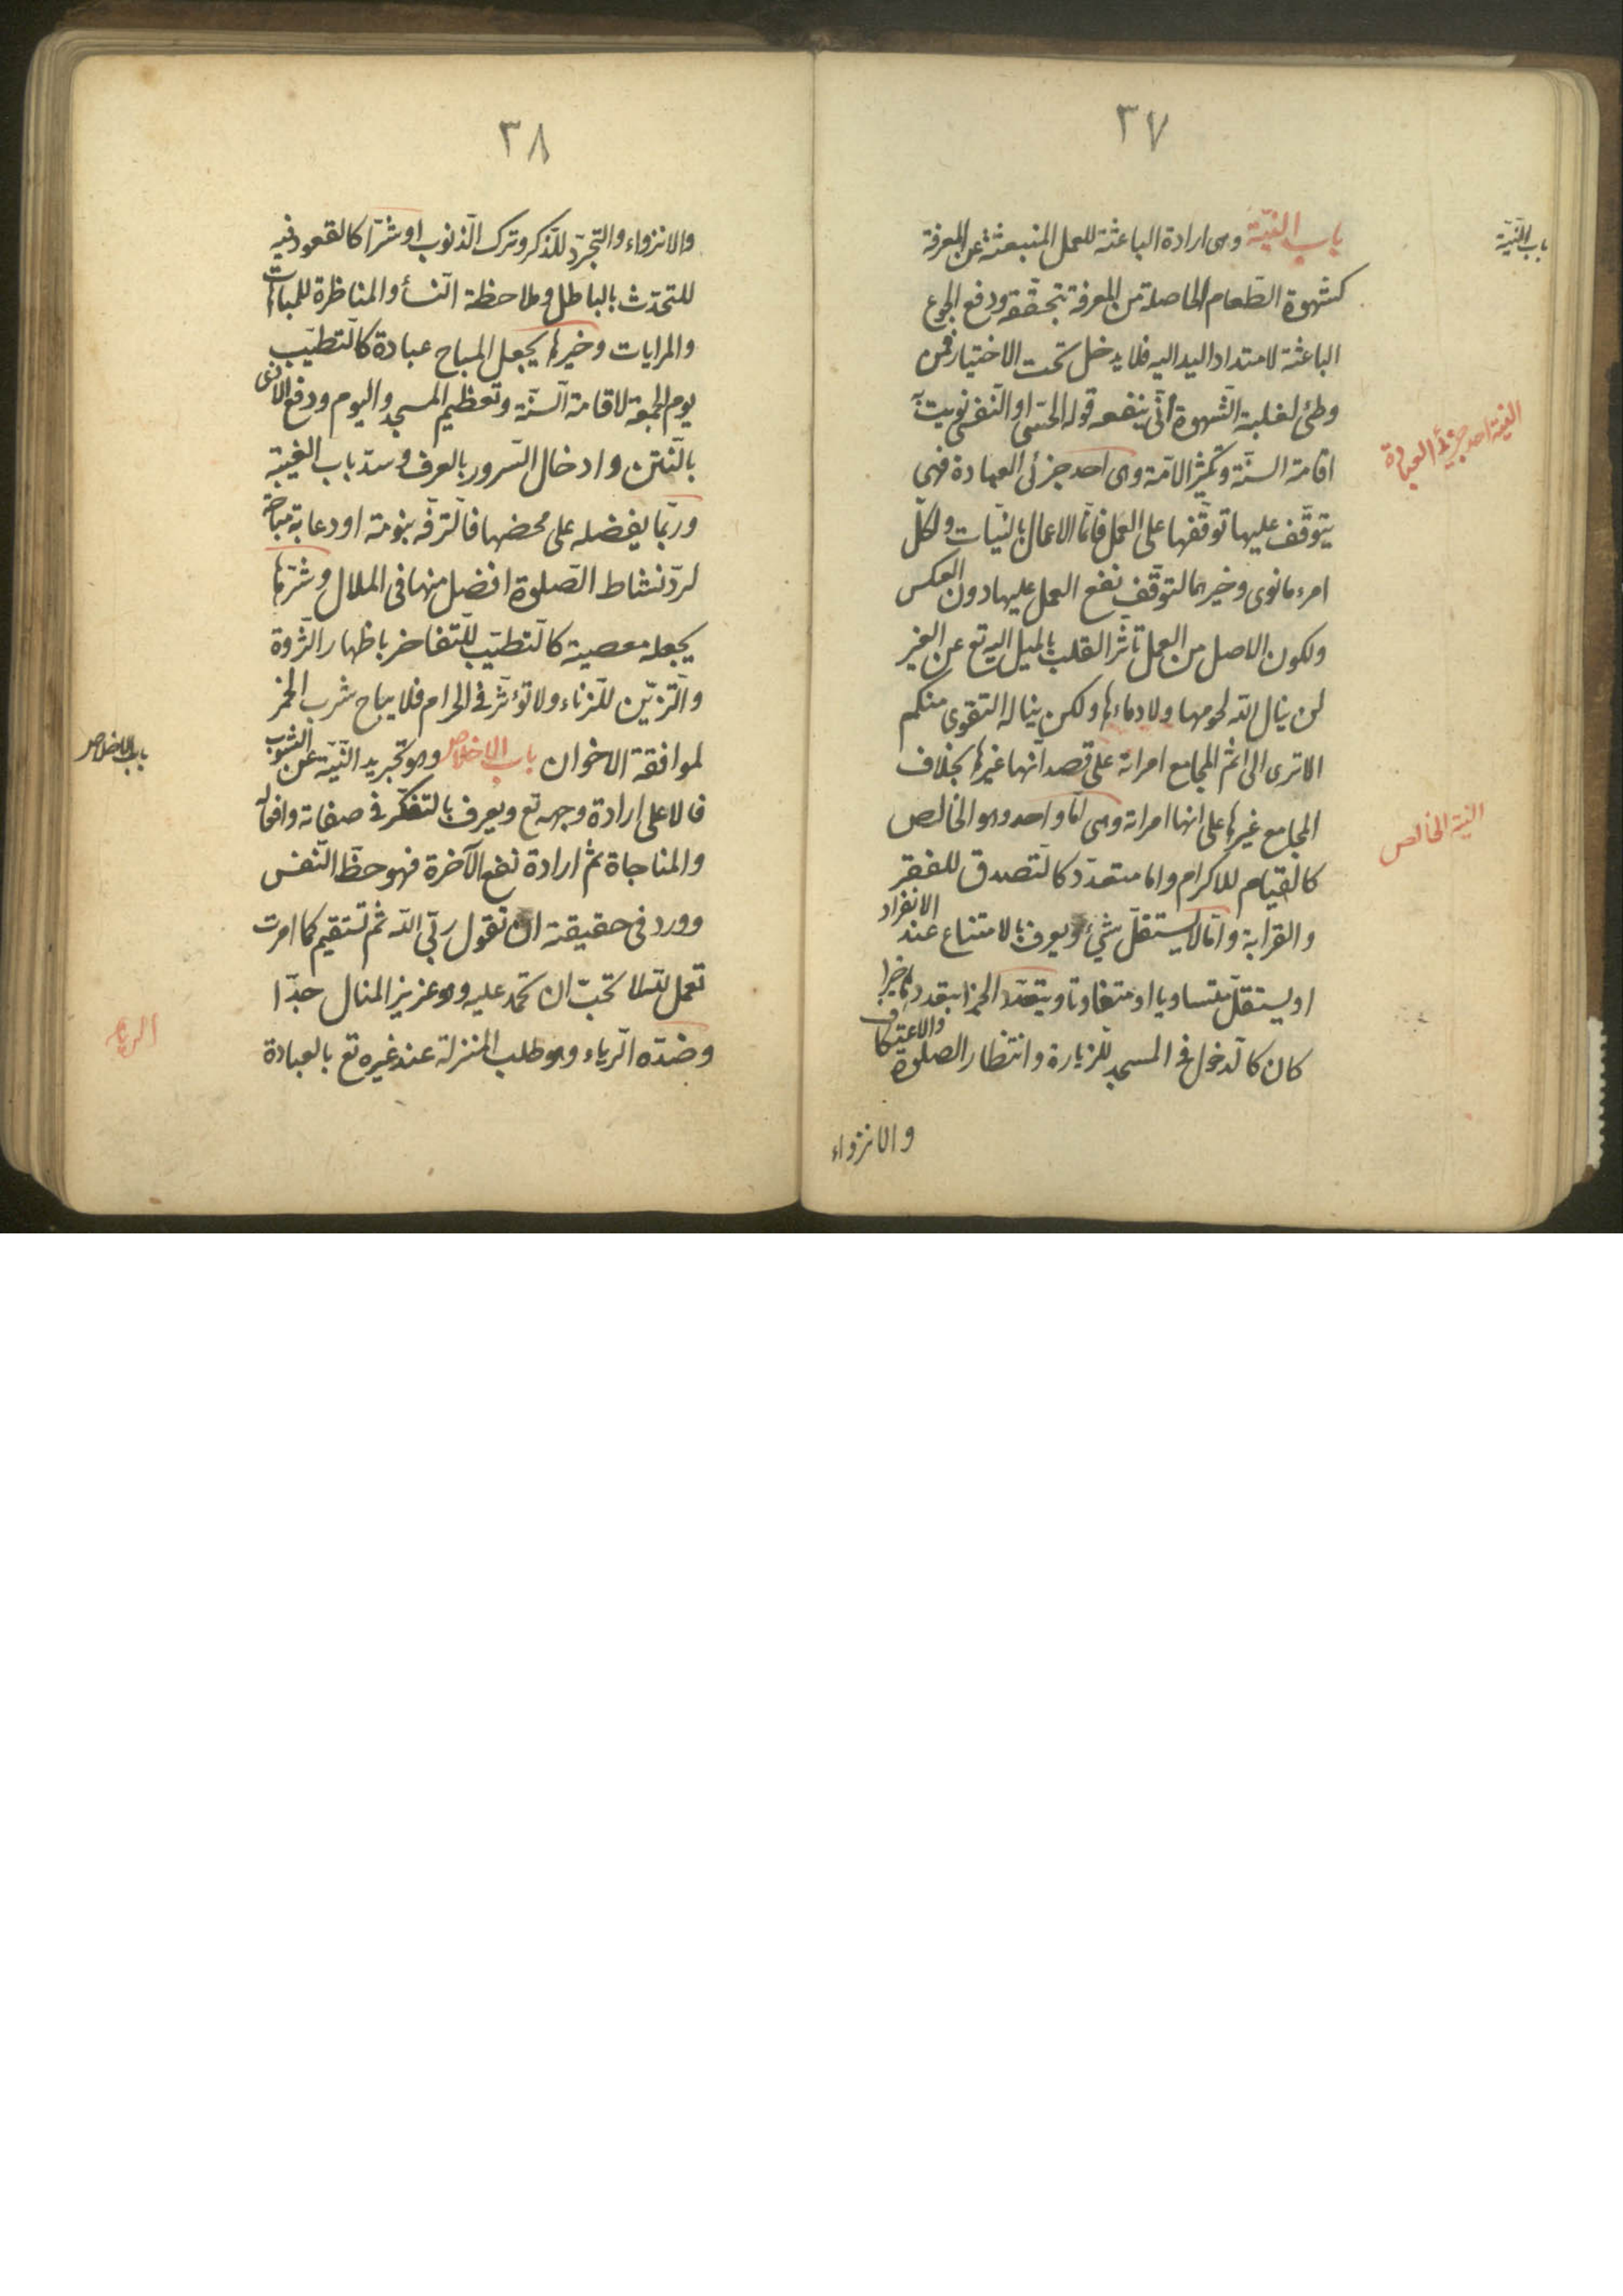 ٣٧
باب النيّة
باب النيّة وهى ارادة الباعثة للعمل المنبعثة عن المعرفة
كشهوة الطّعام الحاصلة من المعرفة بتحقّقه ودفع الجوع
الباعثة لامتداد اليد اليه فلا يدخل تحت الاختيار فمن
وطئ لغلبة الشّهوة أنّى ينفعه قوله الحسّى او النّفسى نويت به
اقامة السنّة وتكثير الامّة وهى احد جزئى العبادة فهى
النية احد جزئى العبادة
يتوقّف عليها توقّفها على العمل فانّما الاعمال بالنيّات ولكلّ
امرء مانوى وخيرهما لتوقّف نفع العمل عليها دون العكس
ولكون الاصل من العمل تأثّر القلب بالميل اليه تع عن الغير
لن ينال اللّه لحومها ولا دماءها ولكن يناله التقوى منكم
الا ترى الى اثم المجامع امراته على قصد انّها غيرها بخلاف
المجامع غيرها على انها امراته وهى امّا واحد وهو الخالص
النية الخالص
كالقيام للاكرام واما متعدّد كالتّصدق للفقر
والقرابة وامّا لا يستقلّ شئ ويعرف بالامتناع عند الانفراد
او يستقلّ متساويا او متفاوتا ويتعدّد الجزا بتعددها خيرا
كان كالدّخول فى المسجد للزيارة وانتظار الصلوة والاعتكاف
والانزواء
٣٨
والانزواء والتجرّد للذّكر وترك الذّنوب او شرّا كالقعود فيه
للتحدّث بالباطل وملاحظة النّسأ والمناظرة للمباهات
والمرايات وخيرها يجعل المباح عبادة كالتطيّب
يوم الجمعة لاقامة السّنّة وتعظيم المسجد واليوم ودفع الاذى
بالنّتن وادخال السّرور بالعرف وسدّ باب الغيبة
وربّما يفضله على محضها فالترفّه بنومة او دعابة مباحة
لردّ نشاط الصّلوة افضل منها فى الملال وشرّها
يجعله معصية كالتطيّب للتّفاخر باظهار الثّروة
والتّزيّن للزناء ولا تؤثّر فى الحرام فلا يباح شرب الخمر
لموافقة الاخوان باب الاخلاص وهو تجريد النّيّة عن الشوب
باب الاخلاص
فالاعلى ارادة وجهه تع ويعرف بالتفكّر فى صفاته وافعاله
والمناجاة ثمّ ارادة نفع الآخرة فهو حظّ النّفس
وورد فى حقيقته ان تقول ربّى اللّه ثمّ تستقيم كما امرت
تعمل للّه لا تحبّ ان تحمد عليه وهو عزيز المنال جدّا
وضدّه الرّياء وهو طلب المنزلة عند غيره تع بالعبادة
الرياء